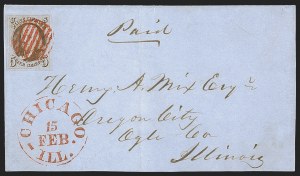 Paid
Henry A. Mix Esqr
Oregon City
Ogle Co
Illinois
CHICAGO
15
FEB.
ILL.